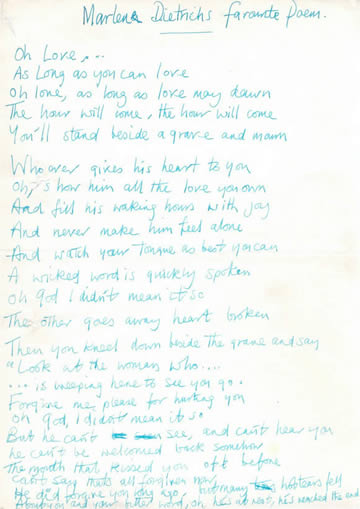 Marlena Dietrichs favourite Poem.
Oh Love, ...
As Long as you can love
Oh love, as long as love may dawn
The hour will come, the hour will come
You'll stand beside a grave and mourn
Whoever gives his heart to you
Oh, show him all the love you own
And fill his waking hours with joy
And never make him feel alone
And watch your tongue as best you can
A wicked word is quickly spoken
Oh god I didn't mean it so
The other goes away heart broken
Then you kneel down beside the grave and say
"Look at the woman who....
... is weeping here to see you go.
Forgive me, please for hurting you
Oh god, I didn't mean it so
But he can't see, and can't hear you
he can't be welcomed back somehow
The mouth that kissed you oft before
can't say that's all forgiven now,
He did forgive you long ago, but many hot tears fell
About you and your bitter word, oh he's at rest, he's reached the end